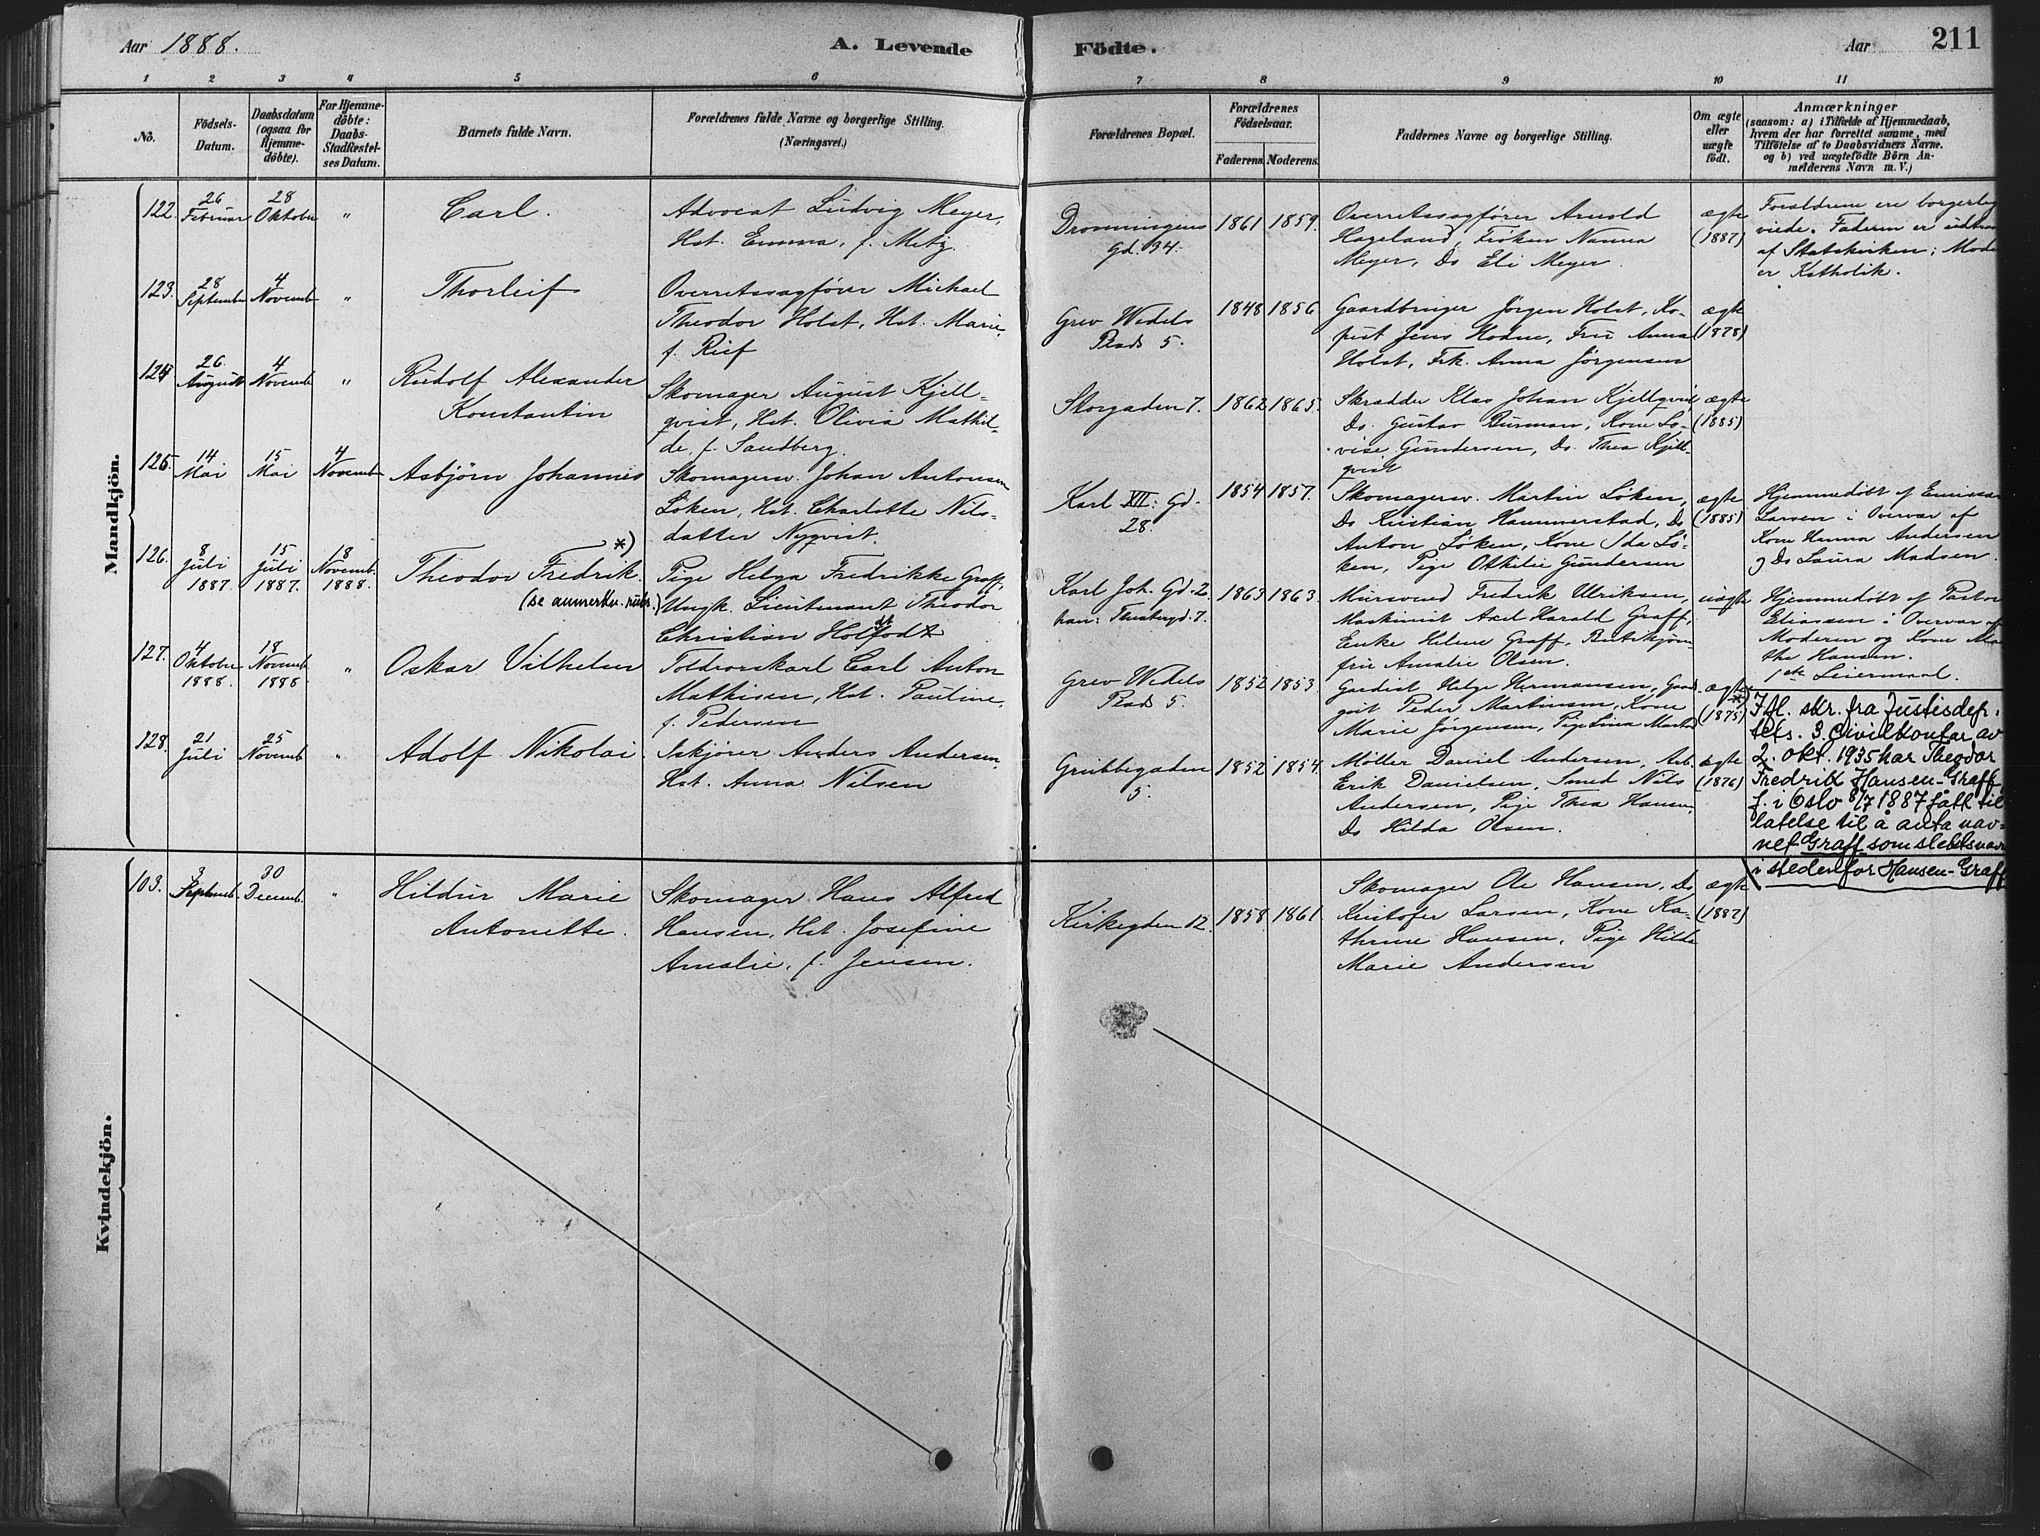 Aar 1888.
A. Levende
Födte.
Aar
211
1 2 3 4 5 6 7 8 9 10 11
No.
Födsels-
Datum.
Daabsdatum
(ogsaa for
Hjemme-
döbte).
For Hjemme-
döbte:
Daabs-
Stadfæstel-
ses Datum.
Barnets fulde Navn.
Forældrenes fulde Navne og borgerlige Stilling.
(Næringsvei.)
Forældrenes Bopæl.
Forældrenes
Födselsaar.
Faderens. Moderens.
Faddernes Navne og borgerlige Stilling.
Om ægte
eller
uægte
født.
Anmærkninger
(saasom: a) i Tilfælde af Hjemmedaab,
hvem der har forrettet samme, med
Tilföielse af to Daabsvidners Navne.
og b) ved uægtefödte Börn An-
melderens Navn m. V.)
Mandkjön.
122.
26
Februar
28
Oktober
"
Carl.
Advocat Ludvig Meyer,
Hst. Emma, f. Metz.
Dronningens
Gd. 34.
1861
1859.
Overretssagfører Arnold
Hageland, Frøken Nanna
Meyer, Do Eli Meyer.
ægte
(1887)
Forældrene ere borgerlig
viede. Faderen er udtraa
af Statskirken; Mode
er Katholik.
123.
28
Septembr
4
Novemb
"
Thorleif
Overretssagfører Michael
Theodor Holst, Hst. Marie,
f. Rief
Grev Wedels
Plads 5.
1848
1856.
Gaardbruger Jørgen Holst, Ko-
pist Jens Hodne, Fru Anna
Holst, Frk. Anna Jørgensen
ægte
(1878)
124
26
August
4
Novemb
"
Rudolf Alexander
Konstantin
Skomager August Kjell-
qvist, Hst. Olivia Mathil-
de, f. Sandberg.
Storgaden 7.
1862
1865.
Skrædder Klas Johan Kjellqvist,
Do. Gustav Burman, Kone Lo-
vise Gundersen, Do. Thea Kjell-
qvist
ægte
(1885)
125.
14
Mai
15
Mai
4
Novemb
Asbjørn Johannes
Skomagersv. Johan Antonsen
Löken, Hst. Charlotte Nils-
datter Nyqvist.
Karl XII: Gd.
28.
1854
1857.
Skomagersv. Martin Löken,
Do Kristian Hammerstad, Do
Anton Löken, Kone Ida Lö-
ken, Pige Othilie Gundersen
ægte
(1885)
Hjemmedöbt af
Larsen i Overvær af
Kone Hanna Andersen
og Do Laura Madsen.
126.
8
Juli
1887
15
Juli
1887.
18
Novemb.
1888.
Theodor Fredrik. *)
(se anmerkn. rubr.)
Pige Helga Fredrikke Graff,
Ungk. Lieutenant Theodor
Christian Holfodt
Karl Joh. Gd. 2
han: 7.
1863
1863.
Mursvend Fredrik Ulriksen,
Maskinist Axel Harald Graff,
Enke Helene Graff, Butikjom-
fru Amalie Olsen.
uægte
Hjemmedöbt af Pastor
Eliassen i Overvær af
Moderen og Kone Mar
the Hansen.
1ste Leiermaal.
127.
4
Oktober
1888.
18
Novemb
1888
"
Oskar Vilhelm
Toldrorskarl Carl Anton
Mathisen, Hst. Pauline,
f. Pedersen
Grev Wedels
Plads 5.
1852
1853.
Gardist Helge Hermansen, Gard
Peder Martinsen, Kone
Marie Jørgensen, Pige Lina
ægte
(1875)
*) Ifl. skr. fra Justisdep.
tets. 3. Civilkontor av
2. okt. 1935 har Theodor
Fredrik Hansen-Graff,
f. i Oslo 8/7 1887 fått til
latelse til å anta nav-
net Graff som slektsnavn
istedenfor Hansen-Graff
128.
21
Juli
25
Novemb
"
Adolf Nikolai
Iskjører Anders Andersen,
Hst. Anna Nilsen
Grubbegaden
5.
1852
1854.
Möller Daniel Andersen, Arb.
Erik Danielsen, Smed Nils
Andersen, Pige Thea Hansen,
Do Hilda Olsen.
ægte
(1876)
Kvindekjön.
103.
3
Septemb.
30
Decemb.
"
Hildur Marie
Antonette.
Skomager Hans Alfred
Hansen, Hst. Josefine
Amalie, f. Jensen.
Kirkegden 12.
1858
1861
Skomager Ole Hansen, Do
Kristofer Larsen, Kone Ka-
thrine Hansen, Pige Hilda
Marie Andersen
ægte
(1882)